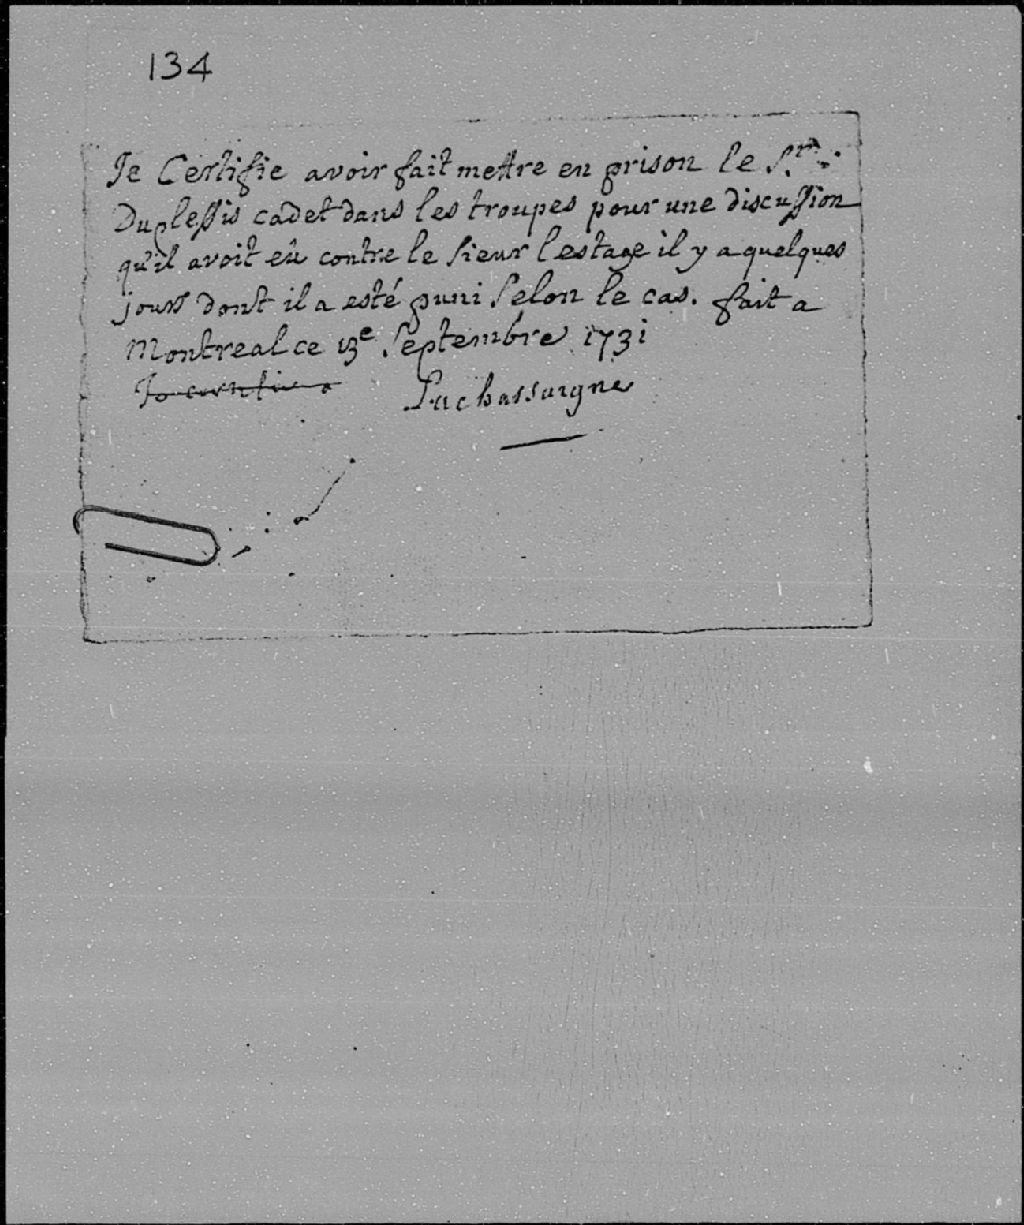 134
Je Certifie avoir fait mettre en prison le Sr.
Duplessis cadet dans les troupes pour une discussion
qu'il avoit eû contre le sieur lestage il y a quelques
jours dont il a esté puni selon le cas. fait a
Montreal ce 13e Septembre 1731
Je certifie a
Puchassaigne